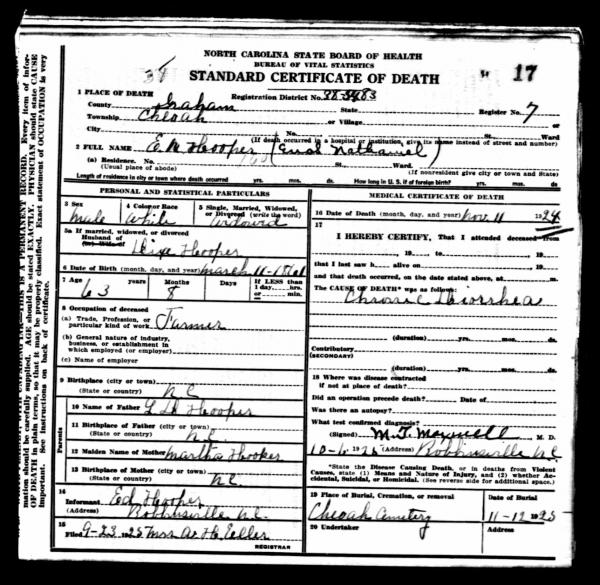 NORTH CAROLINA STATE BOARD OF HEALTH
BUREAU OF VITAL STATISTICS
STANDARD CERTIFICATE OF DEATH
17
1 PLACE OF DEATH
Registration District No. 38-5483
County Graham State
Register No. 7
Township Cheoah or Village
City No. St. Ward
(If death occurred in a hospital or institution, give its name instead of street and number)
2 FULL NAME E. N. Hooper (Enos Nathaniel)
(a) Residence. No. St. Ward.
(Usual place of abode) (If nonresident give city or town and State)
Length of residence in city or town where death occurred yrs. mos. ds. How long in U. S. if of foreign birth? yrs. mos. ds.
PERSONAL AND STATISTICAL PARTICULARS
3 Sex
male
4 Color or Race
White
5 Single, Married, Widowed, or Divorced (write the word)
Widowed
5a If married, widowed, or divorced
Husband of
(or) Wife of
Hooper
6 Date of Birth (month, day, and year) March 11-1861
7 Age years Months Days If LESS than
1 day, hrs.
or min.
63 8
8 Occupation of deceased
(a) Trade, Profession, or particular kind of work Farmer
(b) General nature of industry, business, or establishment in which employed (or employer)
(c) Name of employer
9 Birthplace (city or town)
(State or country) N C
Parents
10 Name of Father Hooper
11 Birthplace of Father (city or town)
(State or country) N. C.
12 Maiden Name of Mother Martha Hooker
13 Birthplace of Mother (city or town)
(State or country) N. C.
14
Informant Ed Hooper
(Address) Robbinsville N. C.
15
Filed 9-23 1925 Mrs A. H. Eller
REGISTRAR
MEDICAL CERTIFICATE OF DEATH
16 Date of Death (month, day, and year) Nov. 11 1924
17
I HEREBY CERTIFY, That I attended deceased from
, 19 , to , 19
that I last saw h alive on , 19
and that death occurred, on the date stated above, at m.
The CAUSE OF DEATH* was as follows:
Chronic Diorrhea
(duration) yrs. mos. ds.
Contributory
(SECONDARY)
(duration) yrs. mos. ds.
18 Where was disease contracted
if not at place of death?
Did an operation precede death? Date of
Was there an autopsy?
What test confirmed diagnosis?
(Signed) M. T. Maxwell M. D.
(Address) Robbinsville N.C.
*State the Disease Causing Death, or in deaths from Violent
Causes, state (1) Means and Nature of Injury, and (2) whether Accidental, Suicidal, or Homicidal. (See reverse side for additional space.)
19 Place of Burial, Cremation, or removal Date of Burial
Cheoah Cemetery 11-12 1925
20 Undertaker Address